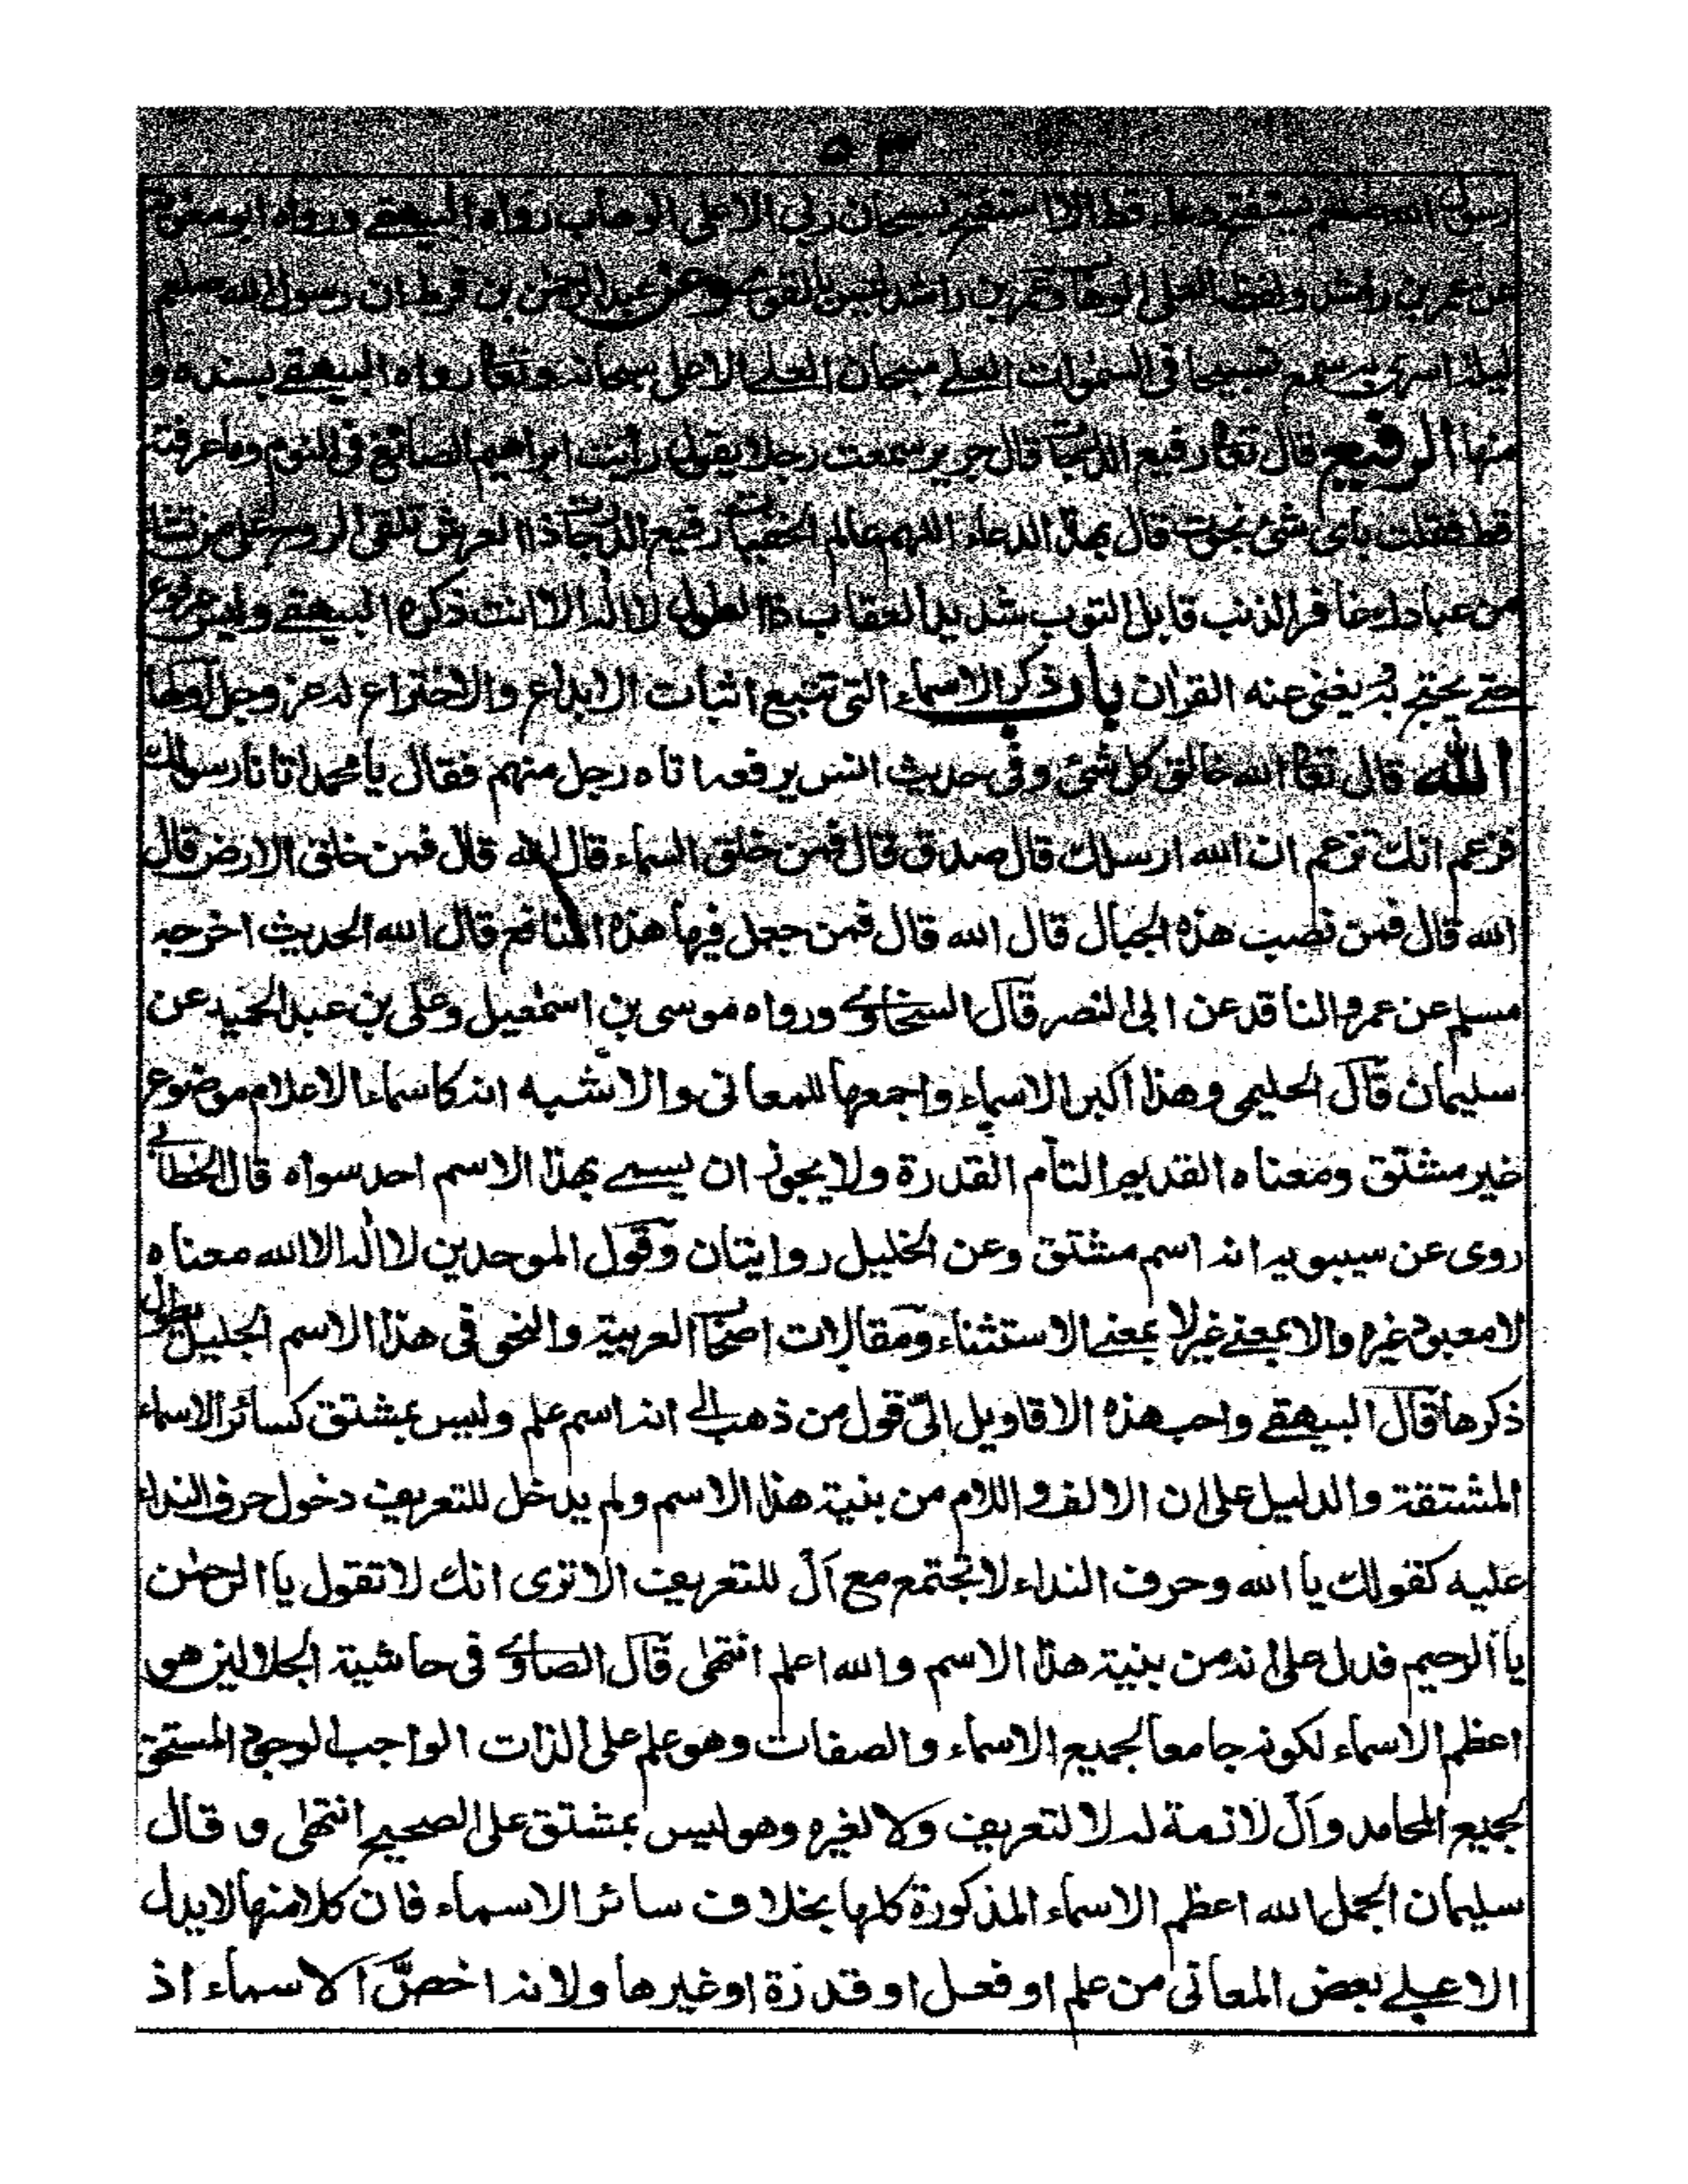 ٥٣
رسول الله صلعم يستفتح دعاء قط الا استفتح بسبحان ربي الاعلى الوهاب رواه البيهقے ورواه ابو معوية
عن عمر بن راشد ولفظه العلى الوهاب وعمر بن راشد ليس بالقوے وعن عبد الرحمن بن قرط ان رسول الله صلعم
ليلة اسرى به سمع تسبيحا فى السموات العلے سبحان العلے الاعلى سبحانه وتعا رواه البيهقے بسنده و
منها الرفيع قال تعا رفيع الدرجات قال جرير سمعت رجلا يقول رأيت ابراهيم الصائغ فى النوم وما عرفته
قط فقلت بأى شئ نجوت قال بهذا الدعاء اللهم عالم الخفيات رفيع الدرجات ذا العرش تلقى الروح على من تشاء
من عبادك غافر الذنب قابل التوب شديد العقاب ذا الطول لا اله الا انت ذكره البيهقے وليس بمرفوع
حتے يحتج به يغنى عنه القران باب ذكر الاسماء التى تتبع اثبات الابداع والاختراع له عز وجل اولها
الله قال تعا الله خالق كل شئ وفى حديث انس يرفعه اتاه رجل منهم فقال يا محمد اتانا رسولك
فزعم انك تزعم ان الله ارسلك قال صدق قال فمن خلق السماء قال الله قال فمن خلق الارض قال
الله قال فمن نصب هذه الجبال قال الله قال فمن جعل فيها هذه المنافع قال الله الحديث اخرجه
مسلم عن عمرو الناقد عن ابى النضر قال السخاوے ورواه موسى بن اسمعيل وعلى بن عبد الحميد عن
سليمان قال الحليمى وهذا اكبر الاسماء واجمعها للمعانى والاشبه انه كاسماء الاعلام موضوع
غير مشتق ومعناه القديم التام القدرة ولا يجوز ان يسمے بهذا الاسم احد سواه قال الخطابے
روى عن سيبويه انه اسم مشتق وعن الخليل روايتان وقول الموحدين لا اله الا الله معناه
لا معبود غيره والا بمعنے غير لا بمعنے الاستثناء ومقالات اصحاب العربية والنحو فى هذا الاسم الجليل يطول
ذكرها قال البيهقے واحب هذه الاقاويل الىّ قول من ذهب الے انه اسم علم وليس بمشتق كسائر الاسماء
المشتقة والدليل على ان الالف واللام من بنية هذا الاسم ولم يدخل للتعريف دخول حرف النداء
عليه كقولك يا الله وحرف النداء لا تجتمع مع ال للتعريف الا ترى انك لا تقول يا الرحمن
يا الرحيم فدل على انه من بنية هذا الاسم والله اعلم انتهى قال الصاوے فى حاشية الجلالين هو
اعظم الاسماء لكونه جامعا لجميع الاسماء والصفات وهو علم على الذات الواجب الوجود المستحق
لجميع المحامد وال لازمة له لا لتعريف ولا لغيره وهو ليس بمشتق على الصحيح انتهى و قال
سليمان الجمل الله اعظم الاسماء المذكورة كلها بخلاف سائر الاسماء فان كلا منها لا يدل
الا علے بعض المعانى من علم او فعل او قدرة او غيرها ولانه اخصّ الاسماء اذ